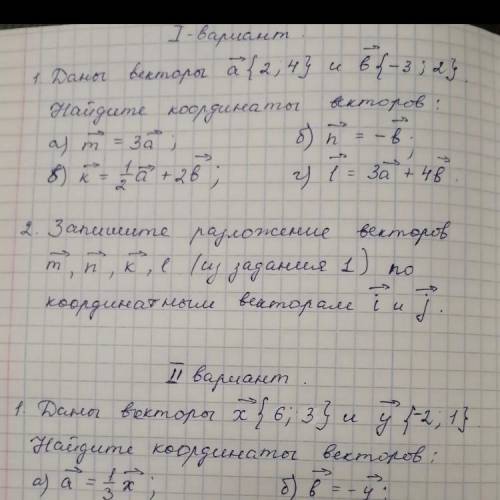 I-вариант.
1. Даны векторы a⃗{2;4} и b⃗{-3;2}.
Найдите координаты векторов:
а) m⃗ = 3a⃗; б) n⃗ = -b⃗;
в) k⃗ = 1/2 a⃗ + 2b⃗; г) l⃗ = 3a⃗ + 4b⃗.
2. Запишите разложение векторов
m⃗, n⃗, k⃗, l (из задания 1) по
координатным векторам i⃗ и j⃗.
II вариант.
1. Даны векторы x⃗{6;3} и y⃗{-2;1}
Найдите координаты векторов:
а) a⃗ = 1/3 x⃗; б) b⃗ = -y⃗;